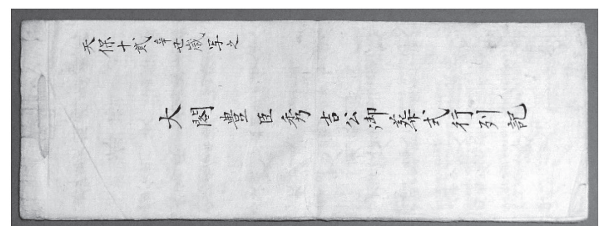 天保十弐辛丑歳写之
大閤豊臣秀吉公御葬式行列記